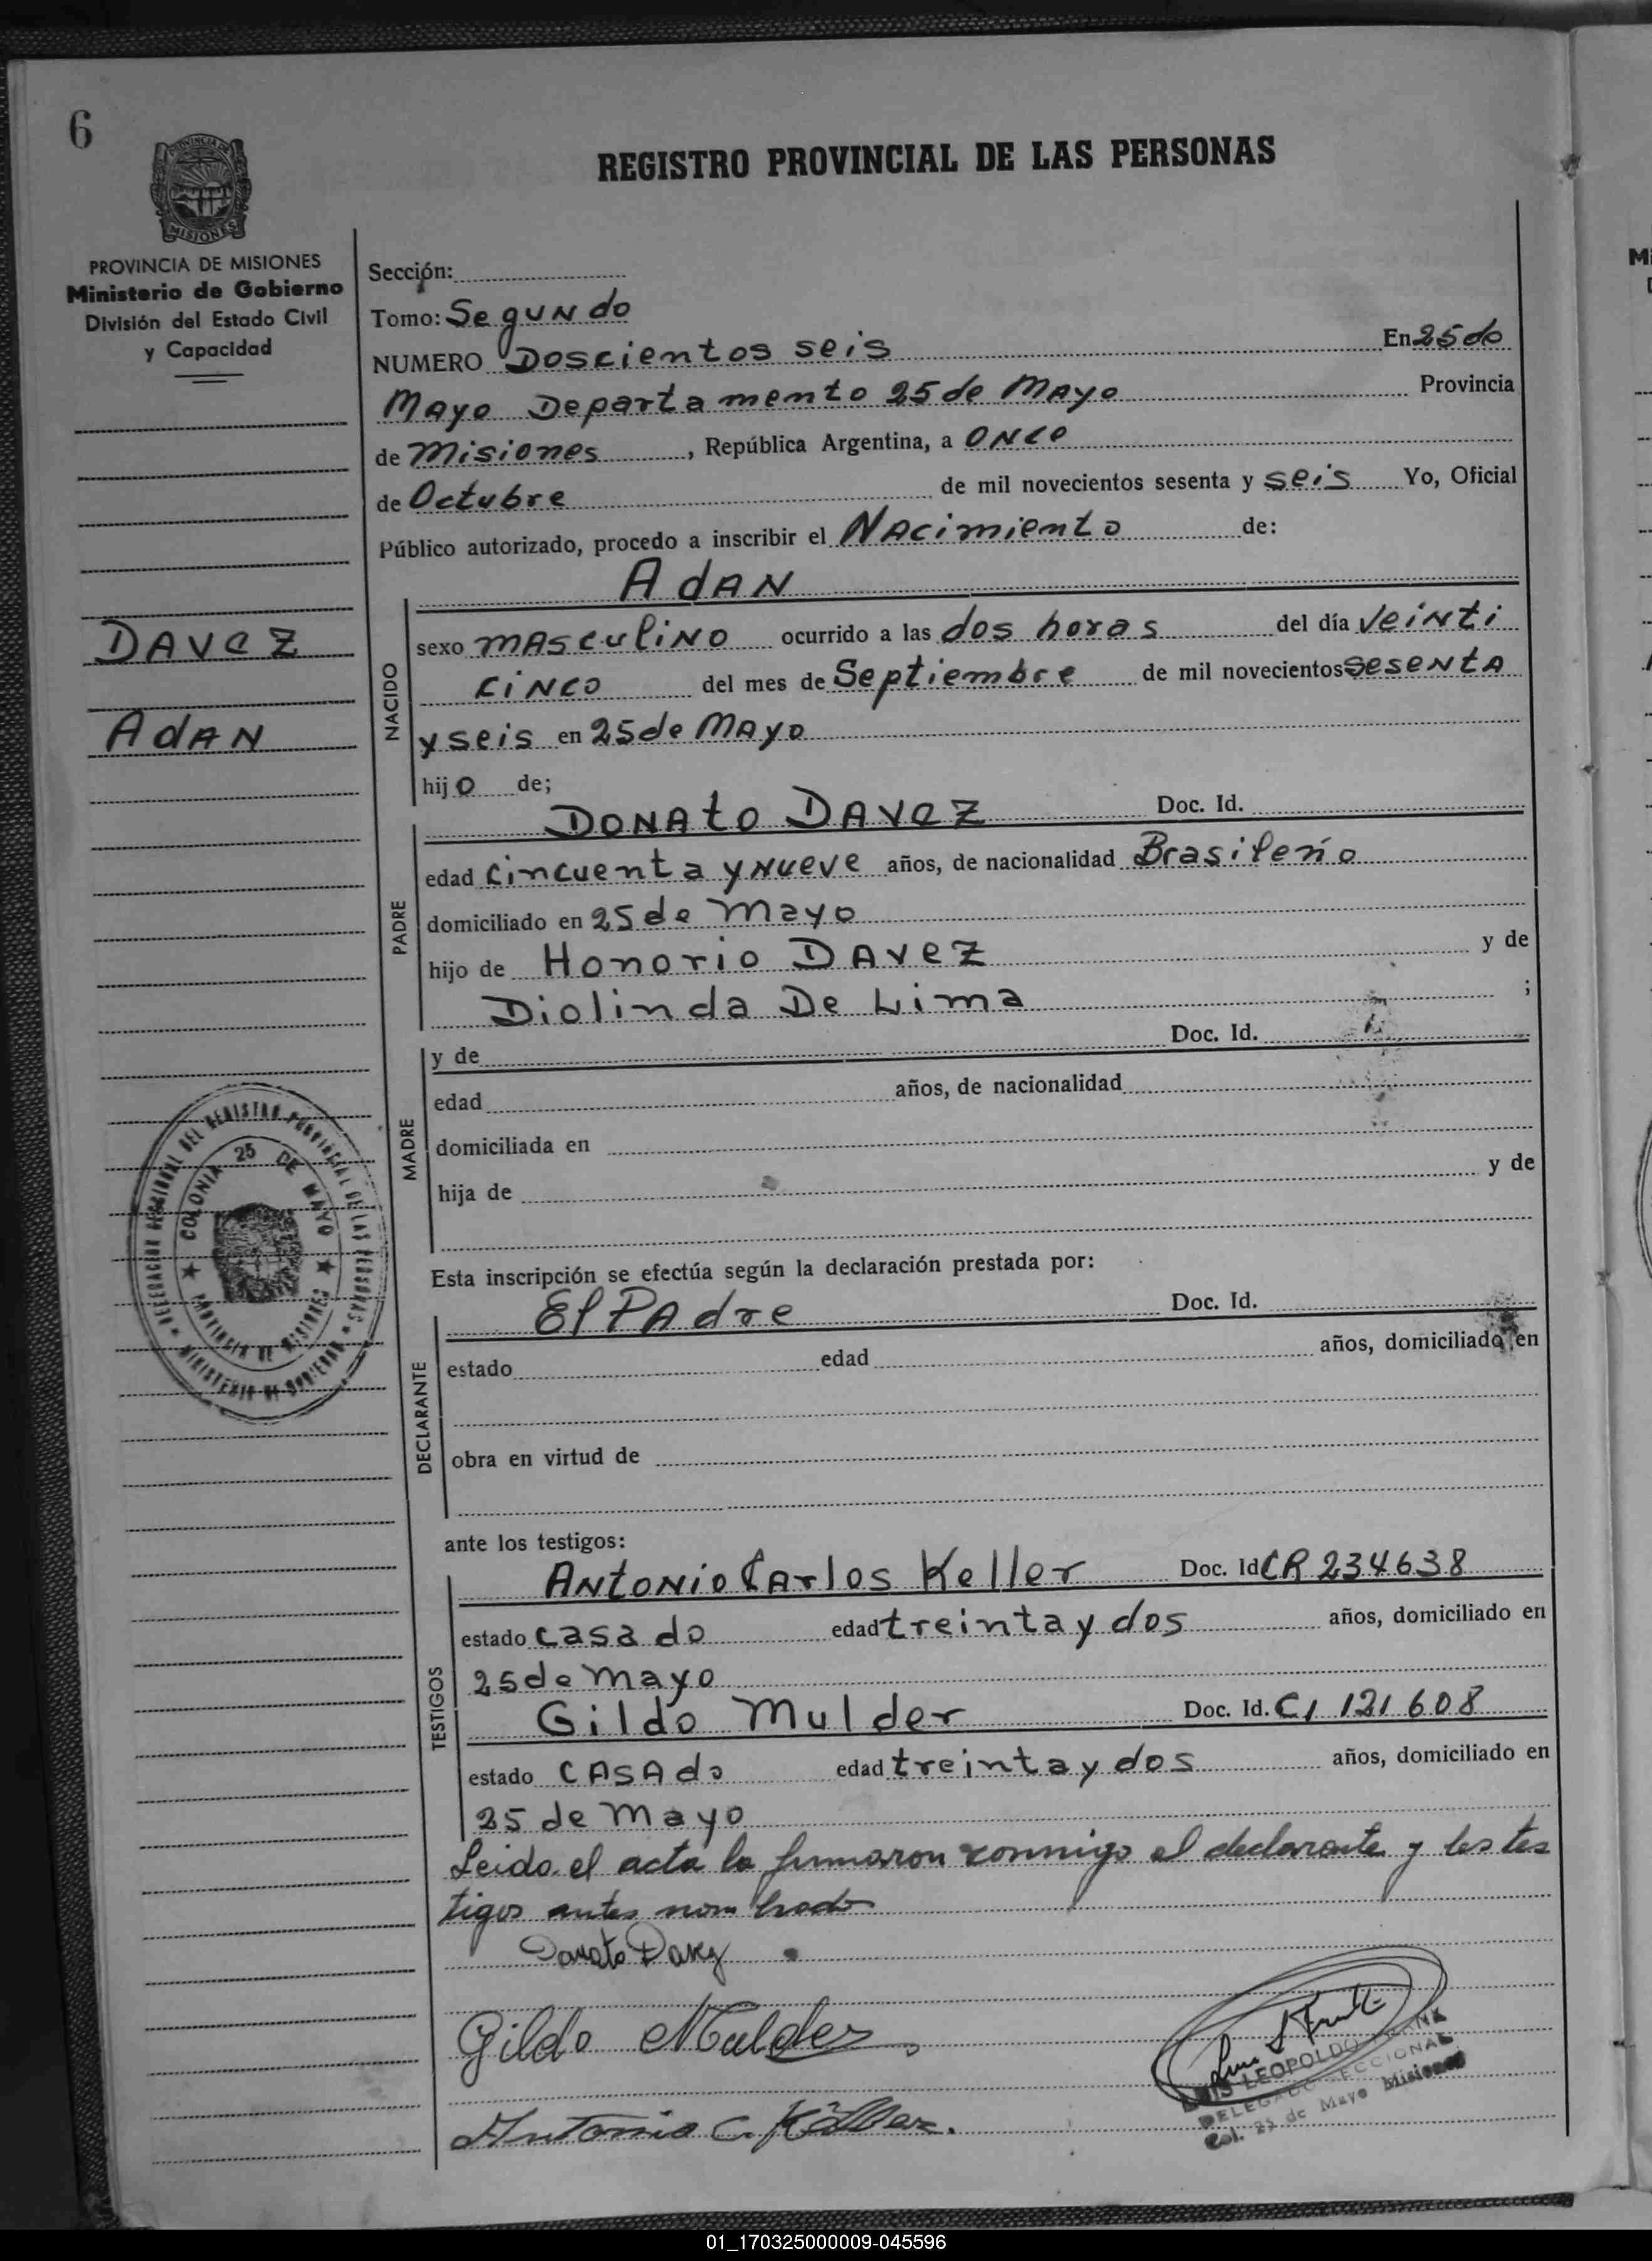 6
REGISTRO PROVINCIAL DE LAS PERSONAS
PROVINCIA DE MISIONES
Ministerio de Gobierno
División del Estado Civil
y Capacidad
DAVEZ
AdAN
Sección:
Tomo: Segundo
NUMERO Doscientos seis En 25 de
Mayo Departamento 25 de Mayo Provincia
de Misiones, República Argentina, a ONCE
de Octubre de mil novecientos sesenta y seis Yo, Oficial
Público autorizado, procedo a inscribir el Nacimiento de:
AdAN
NACIDO
sexo masculino ocurrido a las dos horas del día Veinti
cinco del mes de Septiembre de mil novecientos sesenta
y seis en 25 de Mayo
hijo de;
PADRE
DONATO DAVEZ Doc. Id.
edad cincuenta y nueve años, de nacionalidad Brasileño
domiciliado en 25 de Mayo
hijo de Honorio DAVEZ y de
Diolinda De Lima ;
MADRE
y de Doc. Id.
edad años, de nacionalidad
domiciliada en
hija de y de
Esta inscripción se efectúa según la declaración prestada por:
DECLARANTE
El Padre Doc. Id.
estado edad años, domiciliado en
obra en virtud de
ante los testigos:
TESTIGOS
Antonio Carlos Keller Doc. Id CR 234638
estado casado edad treinta y dos años, domiciliado en
25 de Mayo
Gildo Mulder Doc. Id. CI 121608
estado CASAdo edad treinta y dos años, domiciliado en
25 de Mayo
Leido el acta la firmaron conmigo el declarante y los tes
tigos antes nombrado
Donato Davez
Gildo Mulder
Antonio C. Keller.
LUIS LEOPOLDO
DELEGADO SECCIONAL
Col. 25 de Mayo Misiones
DELEGACION SECCIONAL DEL REGISTRO PROVINCIAL DE LAS PERSONAS
MINISTERIO DE GOBIERNO
COLONIA 25 DE MAYO
PROVINCIA DE MISIONES
01_170325000009-045596